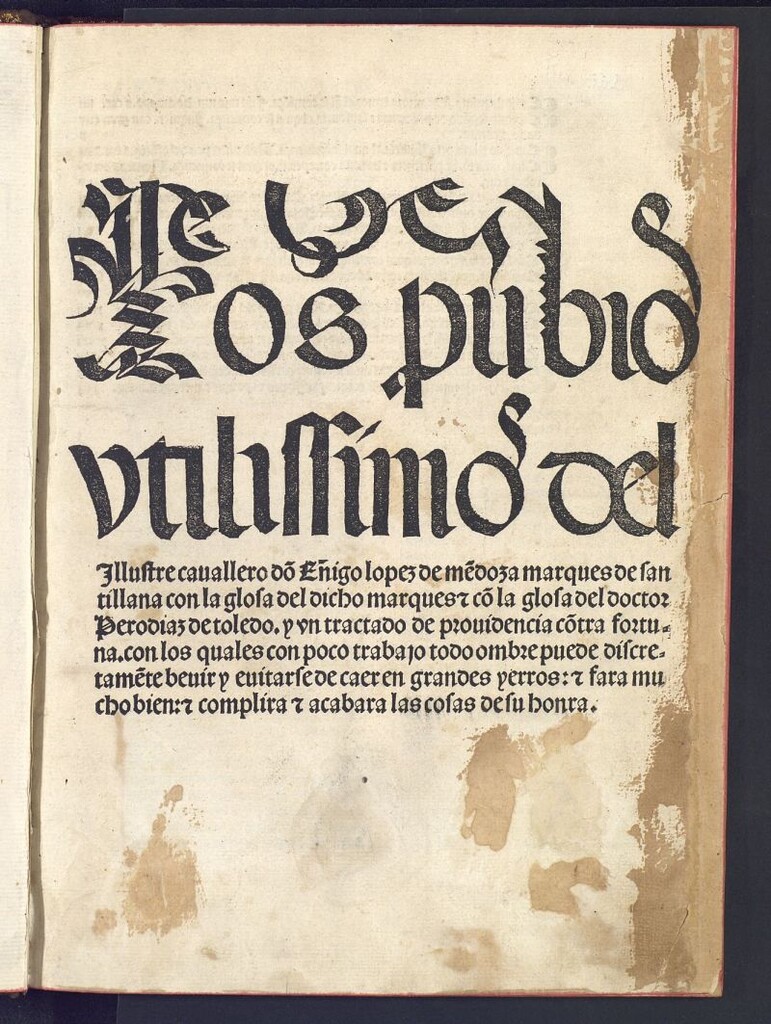 Los ꝓuerbios
vtilissimos del
Jllustre cauallero dõ Eñigo lopez de mẽdoza marques de san
tillana con la glosa del dicho marques ⁊ cõ la glosa del doctor
Perodiaz de toledo. y vn tractado de prouidencia cõtra fortu⸗
na. con los quales con poco trabajo todo ombre puede discre⸗
tamẽte beuir y euitarse de caer en grandes yerros: ⁊ fara mu
cho bien: ⁊ complira ⁊ acabara las cosas de su honra.